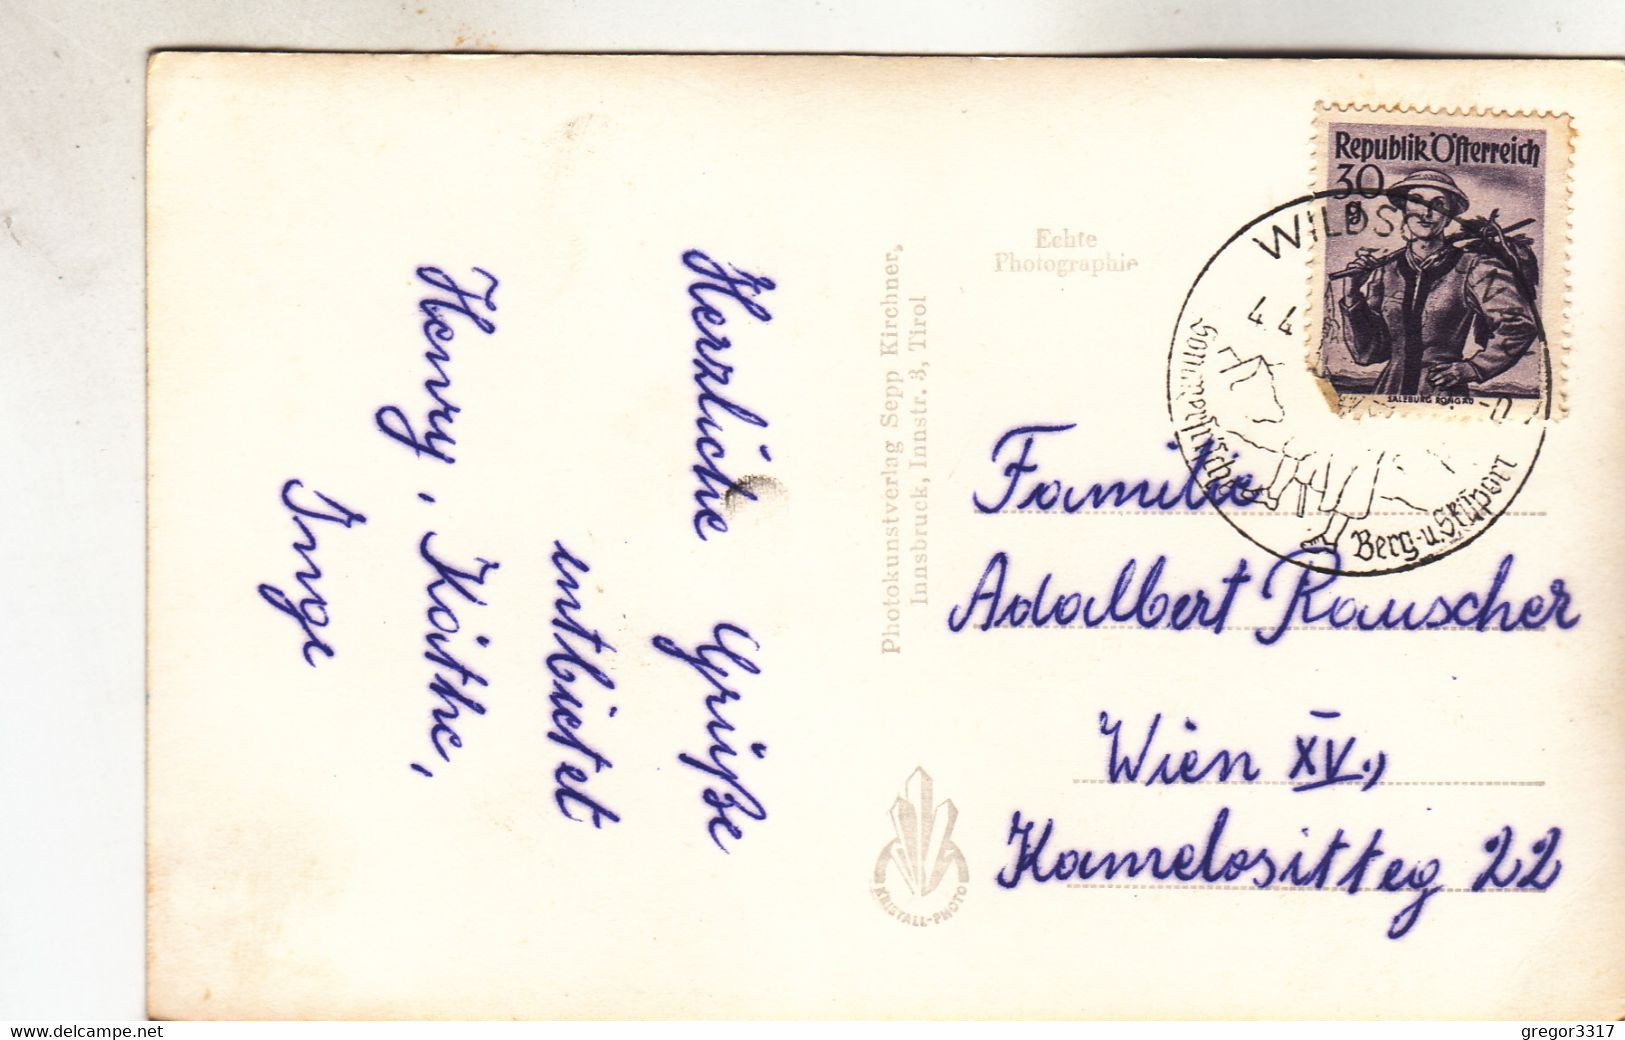 Herzliche Grüße
entbietet
Henry, Käthe,
Inge
Photokunstverlag Sepp Kirchner,
Innsbruck, Innstr. 3, Tirol
KRISTALL-PHOTO
Echte
Photographie
Republik Österreich
30
g
SALZBURG PONGAU
4 4
Berg-u. Skisport
Familie
Adalbert Rauscher
Wien XV.,
22
www.delcampe.net
gregor3317